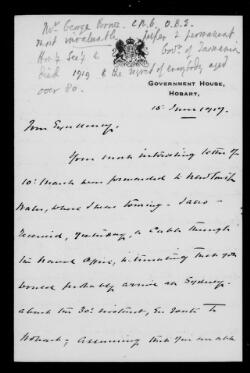 Mr. George Browne. C.M.G. O.B.E.
most invaluable helper & permanent
Secy & Govr. of Tasmania
Died 1919 to the regret of everybody aged
over 80.
GOVERNMENT HOUSE,
HOBART.
15 June 1917.
Your Excellency,
Your most interesting letter of
10. March was forwarded to New South
Wales, where I was touring. I also
received, yesterday, a Cable through
the Naval Office, intimating that you
would probably arrive at Sydney
about the 30. instant, En route to
Hobart; assuming that you are able